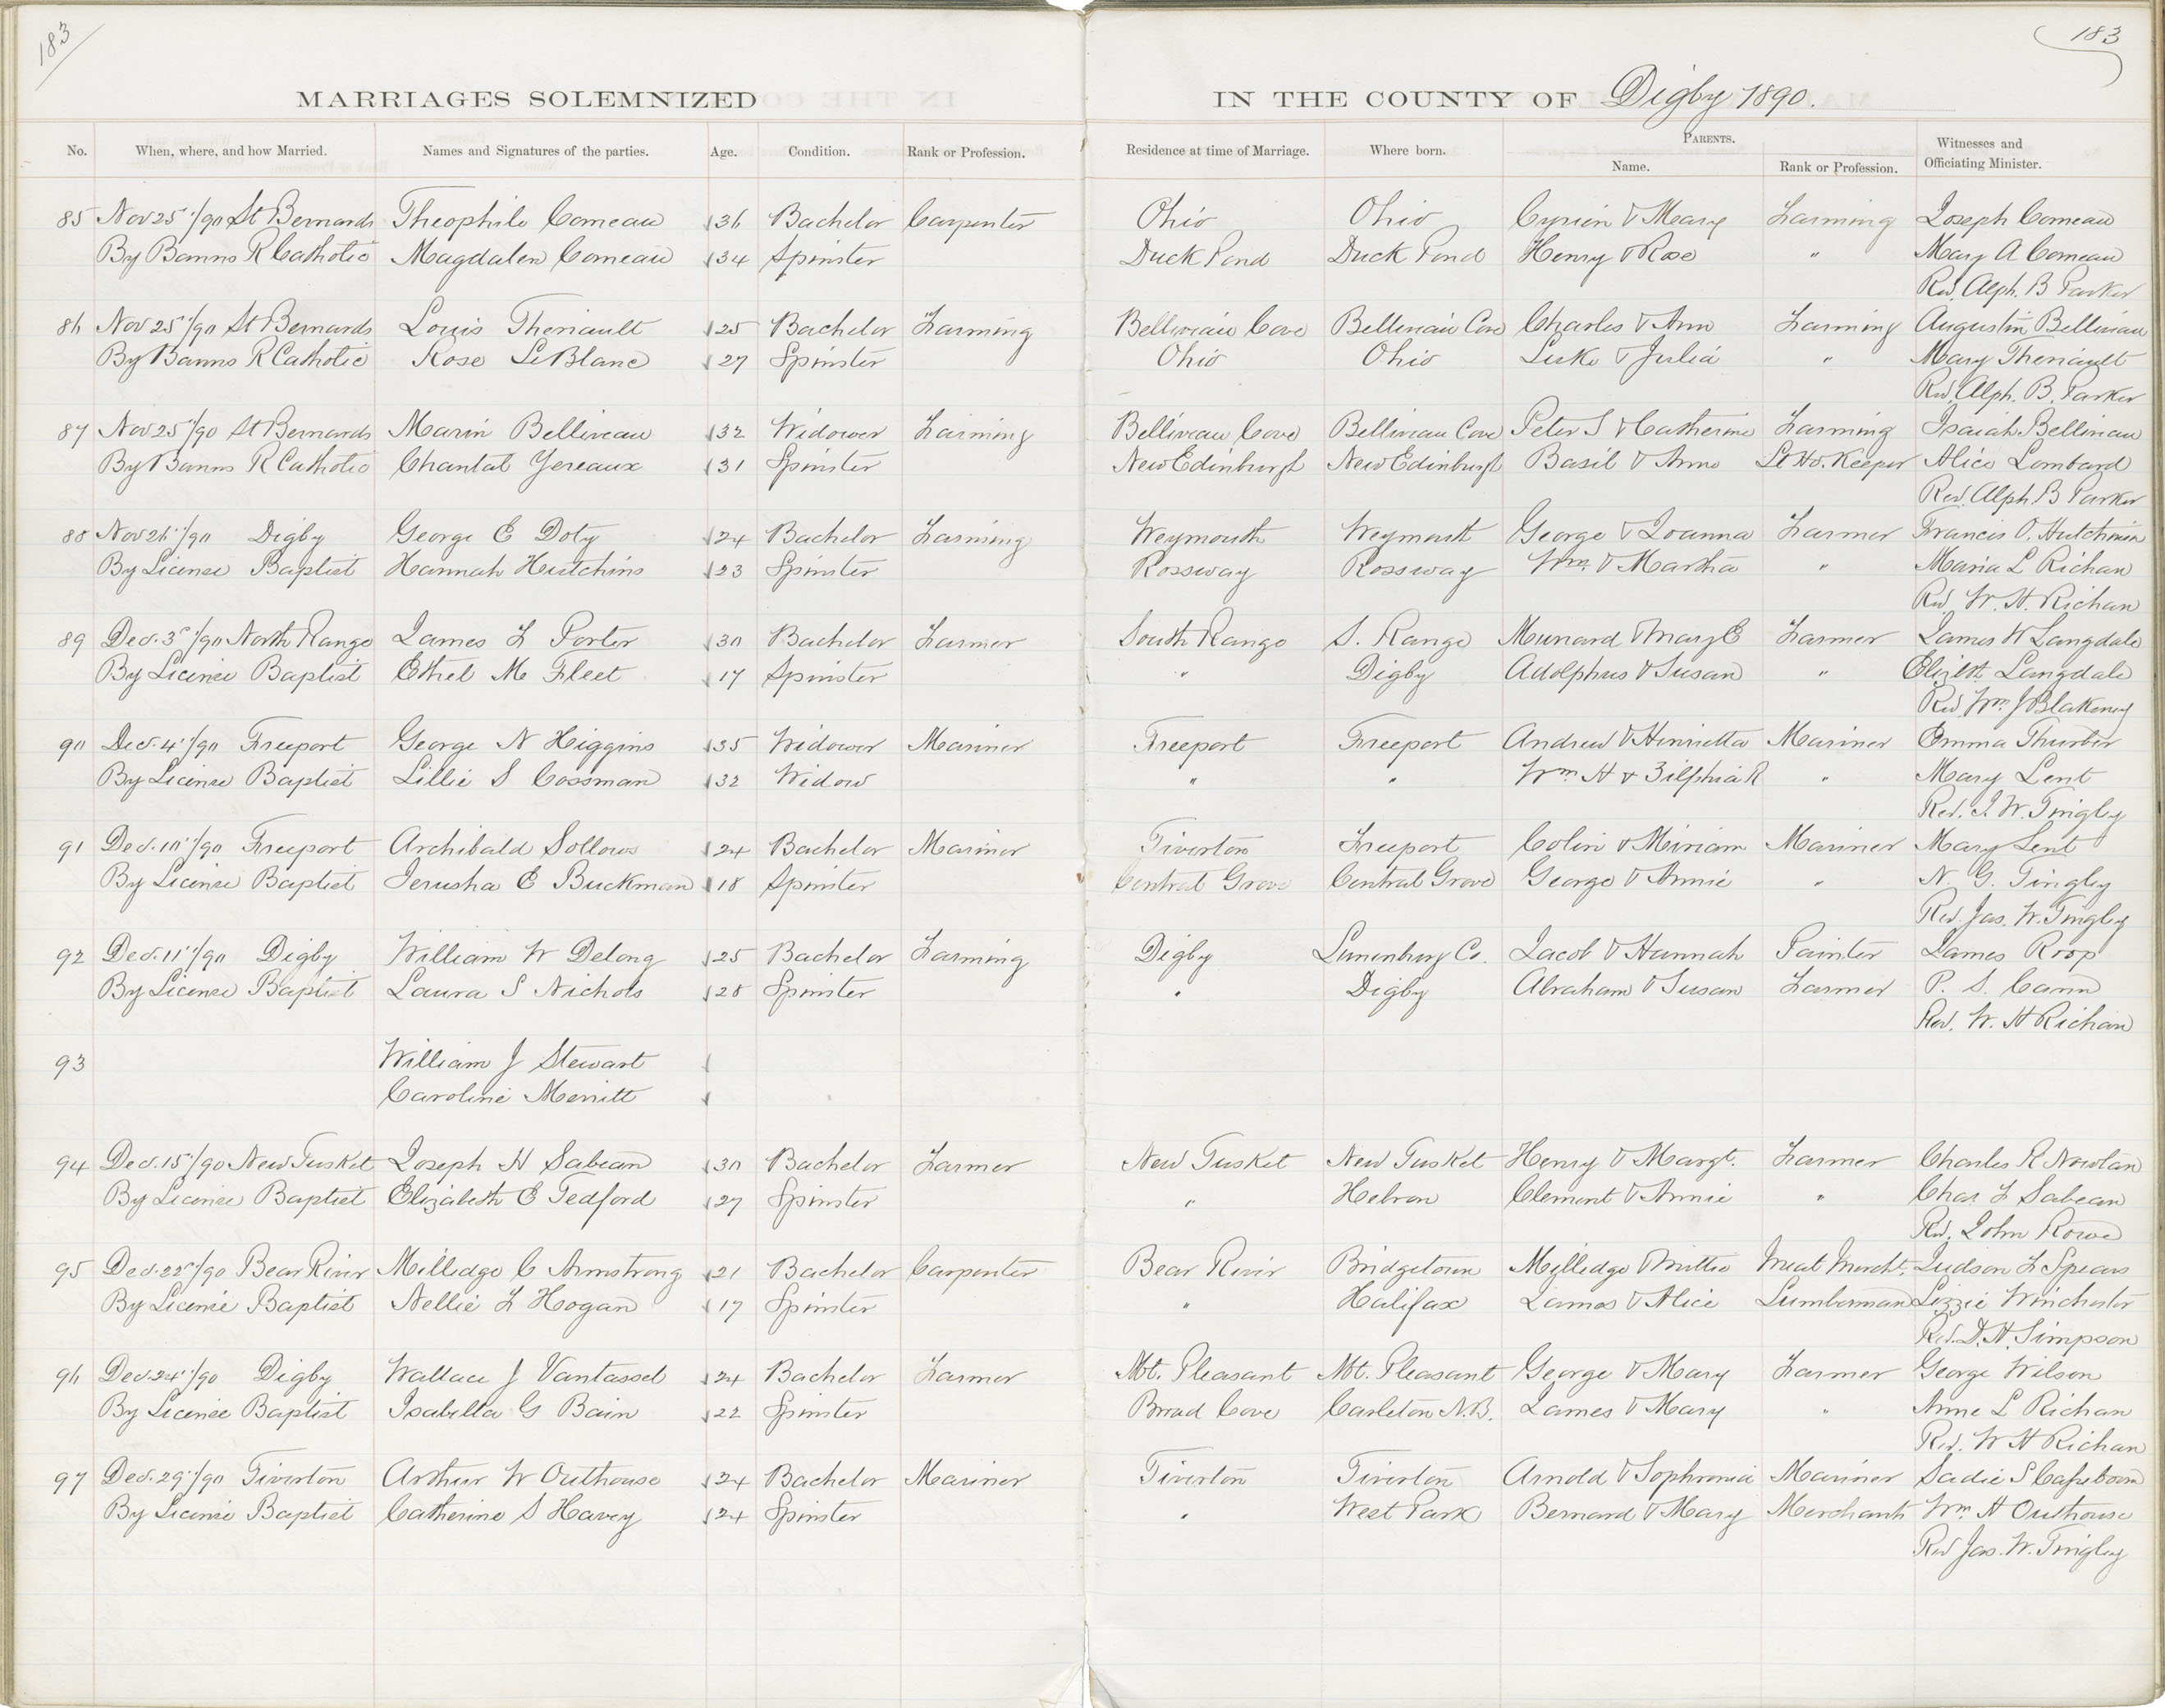 183
183
MARRIAGES SOLEMNIZED
IN THE COUNTY OF Digby 1890.
No. When, where, and how Married. Names and Signatures of the parties. Age. Condition. Rank or Profession. Residence at time of Marriage. Where born. PARENTS. Name. Rank or Profession. Witnesses and Officiating Minister.
85 Nov 25"/90 St Bernards Theophile Comeau 36 Bachelor Carpenter Ohio Ohio Cyrien & Mary Farming Joseph Comeau
By Banns R Catholic Magdalen Comeau 34 Spinster Duck Pond Duck Pond Henry & Rose " Mary A Comeau
Rev. Alph. B Parker
86 Nov 25"/90 St Bernards Louis Theriault 25 Bachelor Farming Belliveau Cove Belliveau Cove Charles & Ann Farming Augustin Belliveau
By Banns R Catholic Rose LeBlanc 27 Spinster Ohio Ohio Luke & Julia " Mary Theriault
Rev. Alph. B. Parker
87 Nov 25"/90 St Bernards Marin Belliveau 32 Widower Farming Belliveau Cove Belliveau Cove Peter S & Catherine Farming Isaiah Belliveau
By Banns R Catholic Chantal Yereaux 31 Spinster New Edinburgh New Edinburgh Basil & Anne Lt Ho. Keeper Alice Lombard
Rev. Alph. B Parker
88 Nov 26"/90 Digby George E Doty 24 Bachelor Farming Weymouth Weymouth George & Joanna Farmer Francis O. Hutchinson
By License Baptist Hannah Hutchins 23 Spinster Rossway Rossway Wm. & Martha " Maria L Richan
Rev W. H. Richan
89 Dec. 3"/90 North Range James F Porter 30 Bachelor Farmer South Range S. Range Meunard & Mary E Farmer James W Langdale
By License Baptist Ethel M Fleet 17 Spinster " Digby Adolphus & Susan " Elizbt. Langdale
Rev Wm. J Blakeney
90 Dec. 4"/90 Freeport George N Higgins 35 Widower Mariner Freeport Freeport Andrew & Henrietta Mariner Emma Thurber
By License Baptist Lillie S Cossman 32 Widow " " Wm. H & Zilphia R " Mary Lent
Rev. J. W. Tingley
91 Dec. 10"/90 Freeport Archibald Sollows 24 Bachelor Mariner Tiverton Freeport Colin & Miriam Mariner Mary Lent
By License Baptist Jerusha E Buckman 18 Spinster Central Grove Central Grove George & Annie " N. G. Tingley
Rev. Jas. W. Tingley
92 Dec. 11"/90 Digby William W Delong 25 Bachelor Farming Digby Lunenburg Co. Jacob & Hannah Painter James Roop
By License Baptist Laura S Nichols 28 Spinster " Digby Abraham & Susan Farmer P. S. Cann
Rev. W. H Richan
93 William J Stewart
Caroline Merritt
94 Dec. 15"/90 New Tusket Joseph H Sabean 30 Bachelor Farmer New Tusket New Tusket Henry & Margt. Farmer Charles R Nowlan
By License Baptist Elizabeth E Tedford 27 Spinster " Hebron Clement & Annie " Chas F Sabean
Rev. John Rowe
95 Dec. 22"/90 Bear River Milledge C Armstrong 21 Bachelor Carpenter Bear River Bridgetown Milledge & Mittie Meat Mercht. Judson F Spears
By License Baptist Nellie F Hogan 17 Spinster " Halifax James & Alice Lumberman Lizzie Winchester
Rev. D. H. Simpson
96 Dec. 24"/90 Digby Wallace J Vantassel 24 Bachelor Farmer Mt. Pleasant Mt. Pleasant George & Mary Farmer George Wilson
By License Baptist Isabella G Bain 22 Spinster Broad Cove Carleton N.B. James & Mary " Anne L Richan
Rev. W H Richan
97 Dec. 29"/90 Tiverton Arthur W Outhouse 24 Bachelor Mariner Tiverton Tiverton Arnold & Sophronia Mariner Sadie S
By License Baptist Catherine S Havey 24 Spinster " West Park Bernard & Mary Merchant Wm. H Outhouse
Rev Jas. W. Tingley